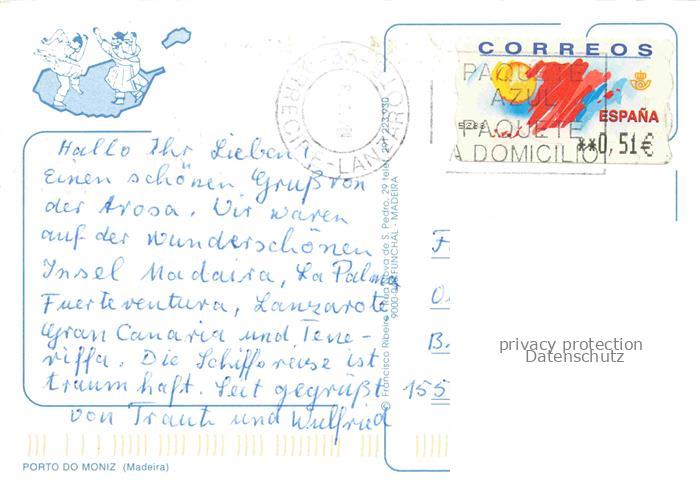 CORREOS
PAQUETE
AZUL
ESPAÑA
PAQUETE
**0,51€
A DOMICILIO
ARRECIFE-LANZAROTE
Hallo Ihr Lieben!
Einen schönen Gruß von
der Arosa. Wir waren
auf der wunderschönen
Insel Madaira, La Palma
Fuerteventura, Lanzarote
Gran Canaria und Tene-
riffa. Die Schiffsreise ist
traumhaft. Seit gegrüßt
von Traute und Wulfried
© Francisco Ribeiro Rua Nova de S. Pedro, 29 telef. 291 223930
FUNCHAL - MADEIRA
155
privacy protection
Datenschutz
PORTO DO MONIZ (Madeira)